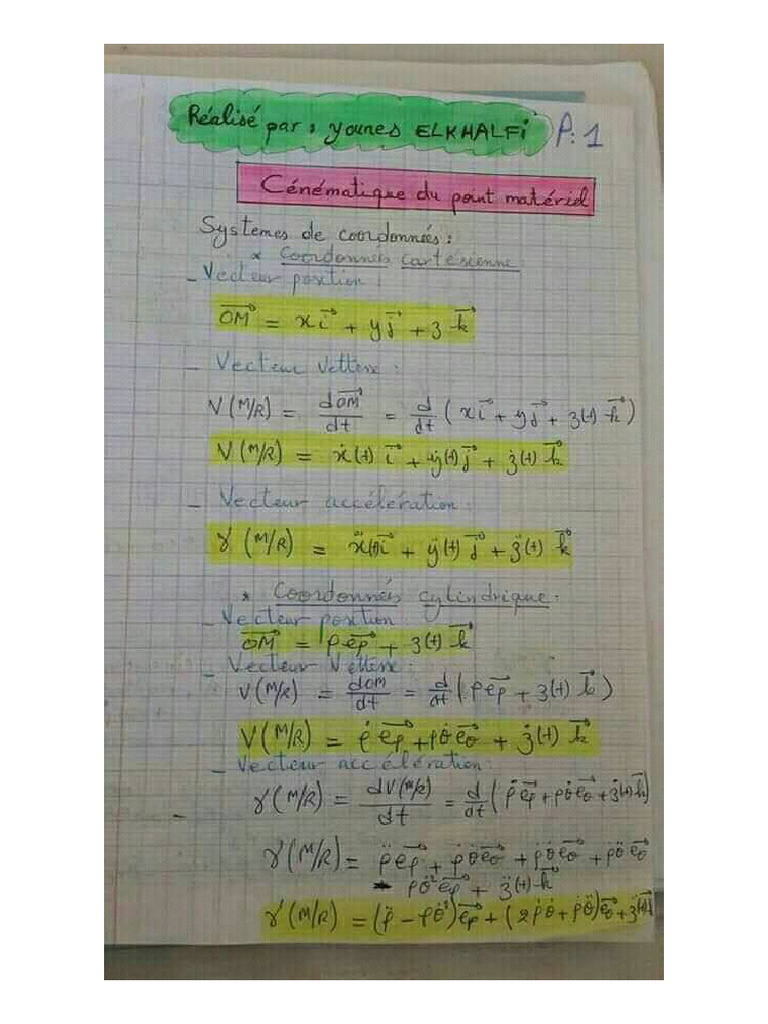 Réalisé par : younes ELKHALFi P: 1
Cénématique du point matériel
Systemes de coordonnées :
* Coordonnés cartésienne
- Vecteur position :
OM⃗ = x i⃗ + y j⃗ + z k⃗
- Vecteur vettesse :
V(M/R) = dOM⃗/dt = d/dt ( x i⃗ + y j⃗ + z(t) k⃗ )
V(M/R) = ẋ(t) i⃗ + ẏ(t) j⃗ + ż(t) k⃗
- Vecteur accéleration :
γ(M/R) = ẍ(t) i⃗ + ÿ(t) j⃗ + z̈(t) k⃗
* Coordonnés cylindrique :
- Vecteur position
OM⃗ = ρ eρ⃗ + z(t) k⃗
- Vecteur Vettesse :
V(M/R) = dOM/dt = d/dt ( ρ eρ⃗ + z(t) k⃗ )
V(M/R) = ρ̇ eρ⃗ + ρθ̇ eθ⃗ + ż(t) k⃗
- Vecteur accéleration :
γ(M/R) = dV(M/R)/dt = d/dt ( ρ̇ eρ⃗ + ρθ̇ eθ⃗ + ż(t) k⃗ )
γ(M/R) = ρ̈ eρ⃗ + ρ̇θ̇ eθ⃗ + ρ̇θ̇ eθ⃗ + ρθ̈ eθ⃗
- ρθ̇² eρ⃗ + z̈(t) k⃗
γ(M/R) = (ρ̈ - ρθ̇²) eρ⃗ + (2ρ̇θ̇ + ρθ̈) eθ⃗ + z̈(t)